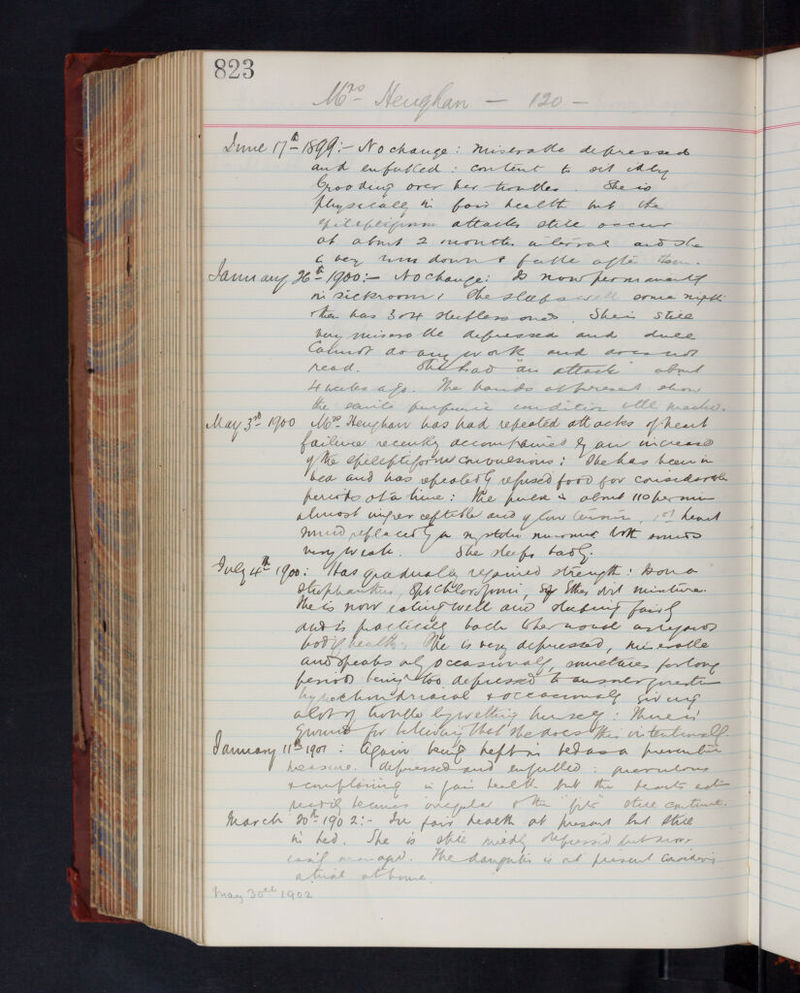 823
Mrs Heughan — 120 —
June 17th 1899:- No change: miserable depressed
and : content to sit idly
brooding over her troubles. She is
physically in fair health but the
epileptiform attacks still occur
at about 2 months interval and she
is very run down & feeble after them.
January 26th 1900:- No change: Is now permanently
in sickroom: She sleeps well some nights
then has 3 or 4 sleepless ones. She is still
very miserable depressed and dull
Cannot do any work and does not
read. She had "an attack" about
4 weeks ago. The hands at present show
the condition well marked.
May 3rd 1900 Mrs Heughan has had repeated attacks of heart
failure recently accompanied by an increase
of the epileptiform convulsions: She has been in
bed and has repeatedly refused food for considerable
periods at a time: The pulse is about 110 per min
almost imperceptible and of low tension, 1st heart
sound replaced by a systolic murmur both sounds
very weak. She sleeps badly.
July 4th 1900: Has gradually regained strength: is on a
Strophanthus, Spt Chloroformi, Ether mixture.
She is now eating well and sleeping fairly
and is practically back to her usual as regards
bodily health. She is very depressed, miserable
and speaks only occasionally, sometimes for long
periods being too depressed to answer questions
hypochondriacal & occasionally giving
a lot of trouble by wetting herself: There is
ground for believing that she does this intentionally
January 11th 1901: Again being kept in bed as a preventive
measure. depressed and : querulous
& complaining in fair health but the heart's action
readily becomes irregular & the "fits" still continue.
March 20th 1902:- In fair health at present but still
in bed. She is still depressed but more
easily managed. The daughter is at present considering
a trial at home.
May 30th 1902